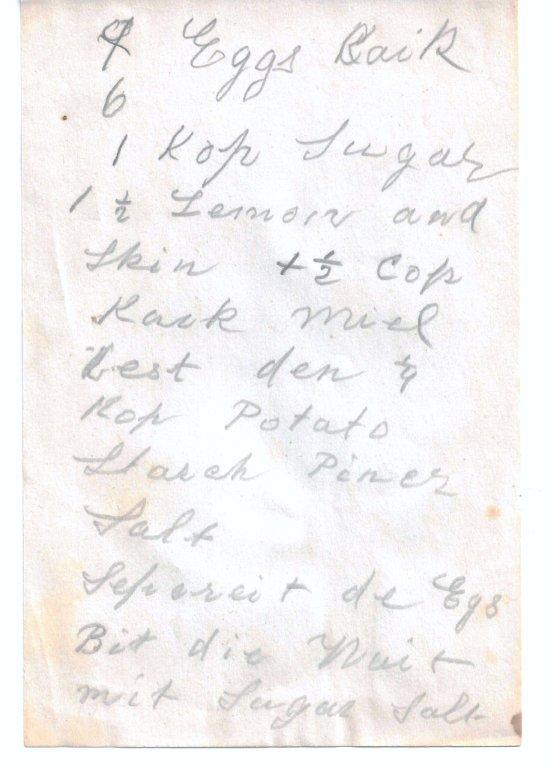 9 Eggs Kaik
6
1 Kop Sugar
1 ½ Lemoin and
Skin ½ Cop
Kack Miel
Lest den ¼
Kop Potato
Starch Pincz
Salt
Sepereit de Egs
Bit die Wait
mit Sugar Salt